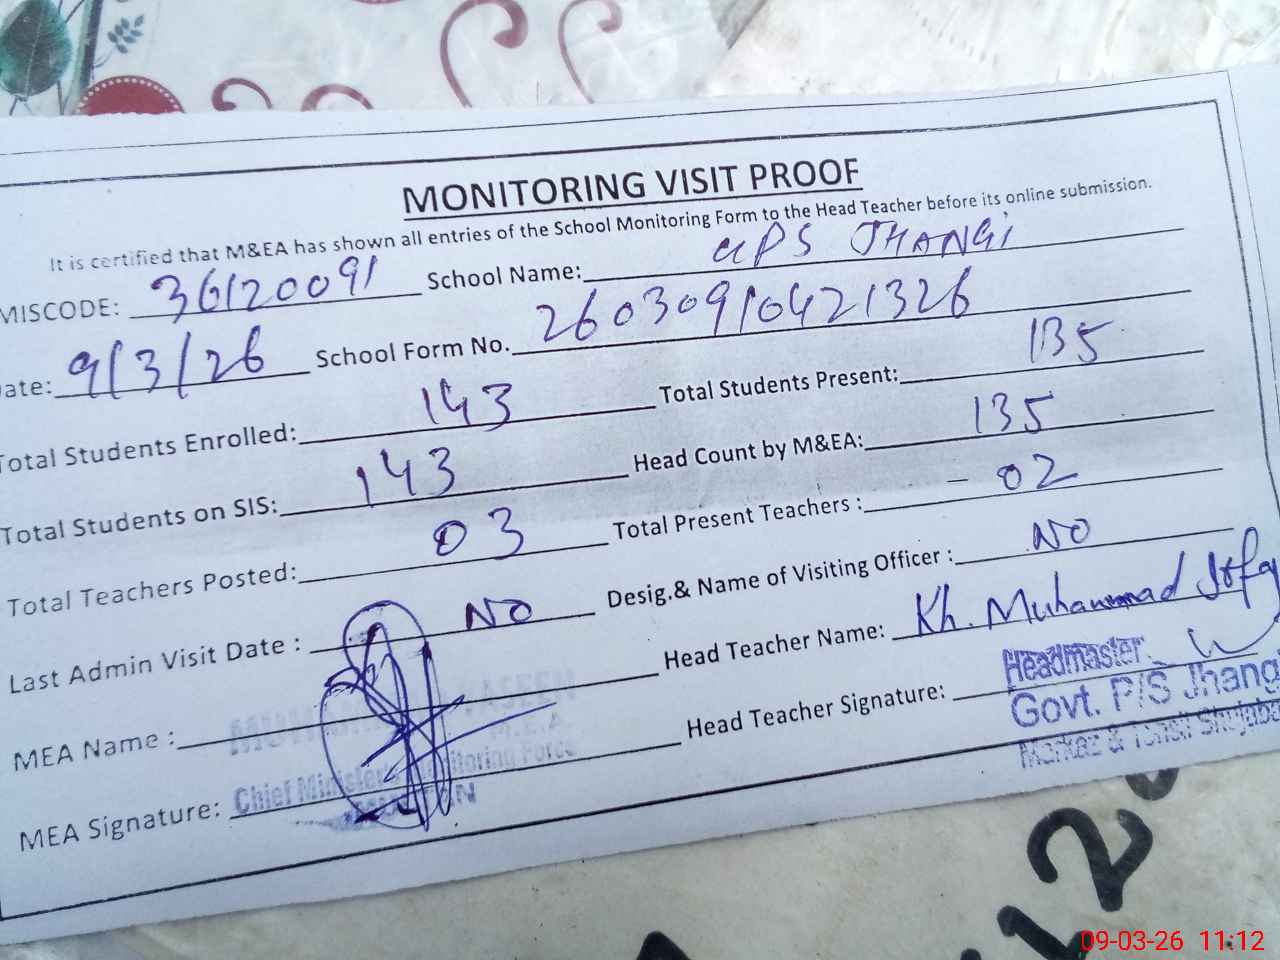 MONITORING VISIT PROOF
It is certified that M&EA has shown all entries of the School Monitoring Form to the Head Teacher before its online submission.
MISCODE: 36120091 School Name: GPS JHANGI
ate: 9/3/26 School Form No. 26030910421326
Total Students Enrolled: 143 Total Students Present: 135
Total Students on SIS: 143 Head Count by M&EA: 135
Total Teachers Posted: 03 Total Present Teachers : – 02
Last Admin Visit Date : NO Desig.& Name of Visiting Officer : NO
MEA Name : YASEEN Head Teacher Name: Kh. Muhammad
M.E.A.
MEA Signature: Chief Minister's Monitoring Force Head Teacher Signature:
Headmaster
Govt. P/S Jhang
Markaz & Tehsil Shujaba
12
09-03-26 11:12